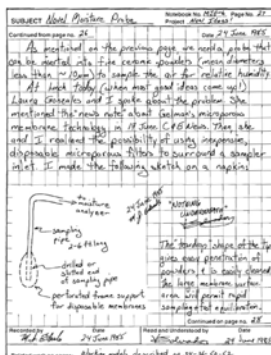 SUBJECT Novel Moisture Probe
Notebook No. Page No. 27
Project New Ideas!
Continued from page no. 26
Date 24 June 1985
As mentioned on the previous page, we need a probe that
can be inserted into fine ceramic powders (mean diameters
less than ~10µm) to sample the air for relative humidity.
At lunch today (when most good ideas come up!)
Laura Gonzales and I spoke about the problem. She
mentioned the "news note" about Gelman's microporous
membrane technology in 17 June C&E News. Then, she
and I realized the possibility of using inexpensive,
disposable microporous filters to surround a sampler
inlet. I made the following sketch on a napkin:
to moisture
analyzer
24 June 1985
"NOTHING
UNDERNEATH"
sampling
pipe
2-6 ft long
drilled or
slotted end
of sampling pipe
perforated frame support
for disposable membranes
The "teardrop" shape of the tip
gives easy penetration of
powders & is easily cleaned.
The large membrane surface
area will permit rapid
sampling & equilibration.
Continued on page no. 28
Recorded by
Date
Read and Understood by
Date
24 June 1985
24 June 1985